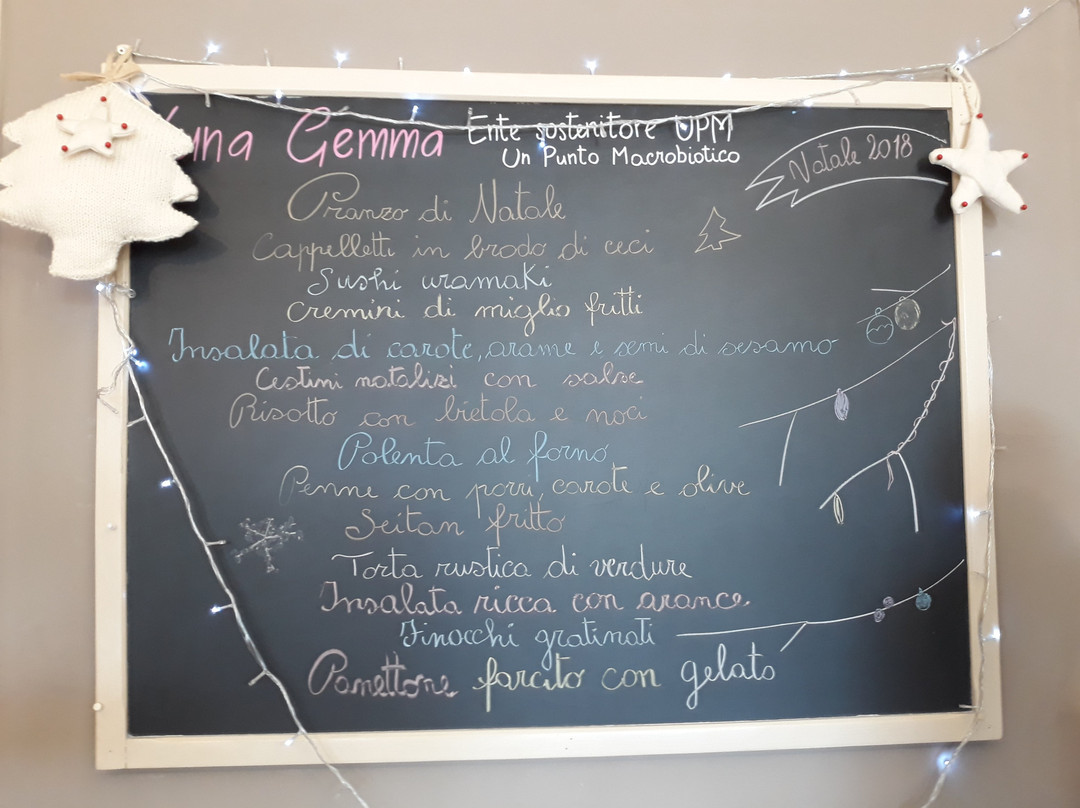 Gemma Ente sostenitore UPM
Un Punto Macrobiotico
Natale 2018
Pranzo di Natale
Cappelletti in brodo di ceci
Sushi uramaki
Cremini di miglio fritti
Insalata di carote, arame e semi di sesamo
Cestini natalizi con salse
Risotto con bietola e noci
Polenta al forno
Penne con porri, carote e olive
Seitan fritto
Torta rustica di verdure
Insalata ricca con arance
Finocchi gratinati
Panettone farcito con gelato